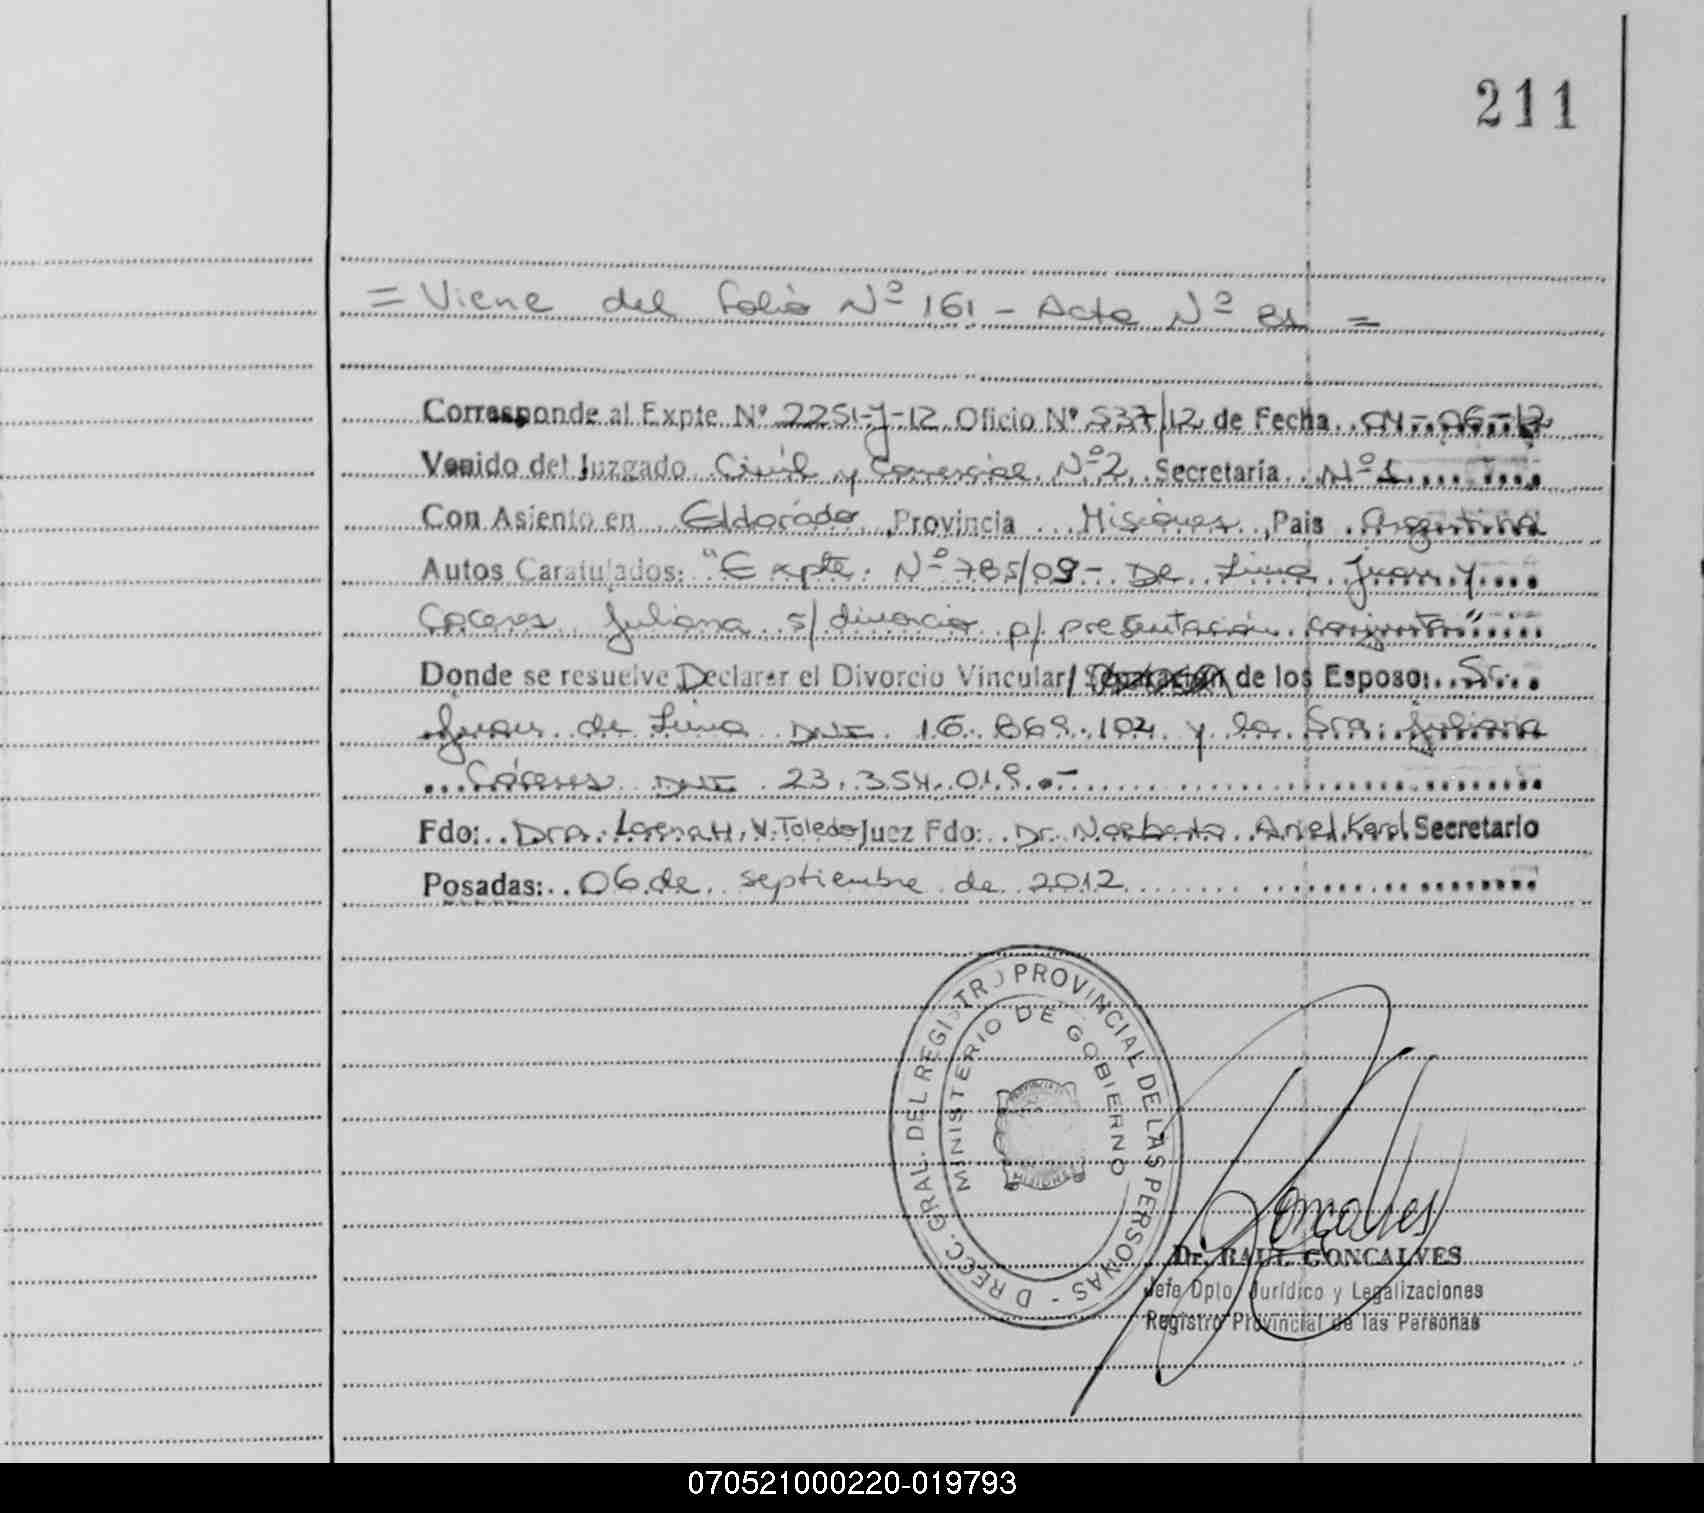 211
= Viene del folio Nº 161 - Acta Nº 81 =
Corresponde al Expte Nº 2251-J-12 Oficio Nº 537/12 de Fecha 04-06-12
Venido del Juzgado Civil y Comercial Nº 2 Secretaría Nº 1
Con Asiento en Eldorado Provincia Misiones, Pais Argentina
Autos Caratulados: "Expte. Nº 785/09 - De Lima Juan y
Caceres Juliana s/ divorcio p/ presentación conjunta"
Donde se resuelve Declarar el Divorcio Vincular/ Separación de los Esposo: Sr.
Juan de Lima DNI 16.869.104 y la Sra. Juliana
Cáceres DNI 23.354.019.-
Fdo: Dra. Lorena H. V. Toledo Juez Fdo: Dr. Norberto Ariel Korol Secretario
Posadas: 06 de septiembre de 2012
DIRECC. GRAL. DEL REGISTRO PROVINCIAL DE LAS PERSONAS -
MINISTERIO DE GOBIERNO
PROVINCIA
MISIONES
Goncalves
Dr. RAUL GONCALVES
Jefe Dpto. Jurídico y Legalizaciones
Registro Provincial de las Personas
070521000220-019793